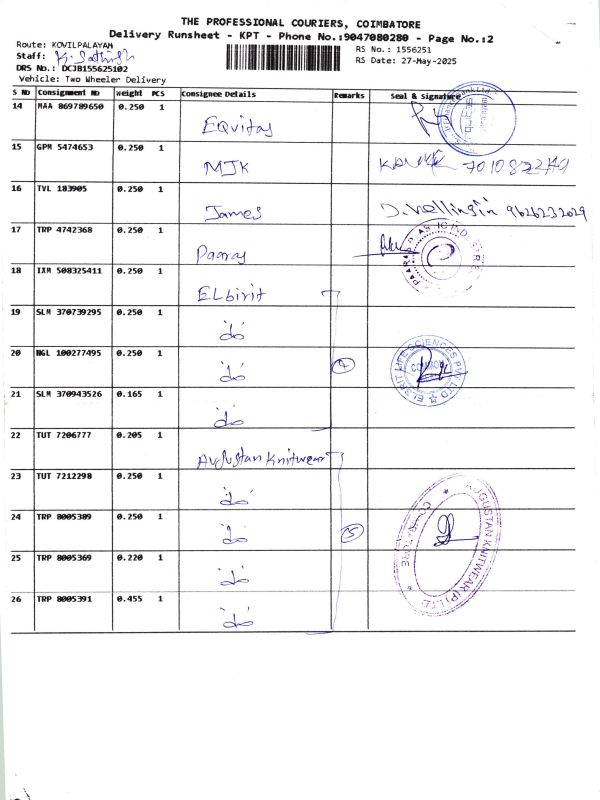 THE PROFESSIONAL COURIERS, COIMBATORE
Delivery Runsheet - KPT - Phone No.:9047080280 - Page No.:2
Route: KOVILPALAYAM
RS No.: 1556251
Staff: K. Sathish
RS Date: 27-May-2025
DRS No.: DCJB155625102
Vehicle: Two Wheeler Delivery
S No Consignment No Weight PCS Consignee Details Remarks Seal & Signature
14 MAA 869789650 0.250 1 Equitas
15 GPM 5474653 0.250 1 MJK
16 TVL 183905 0.250 1 James 9626232029
17 TRP 4742368 0.250 1 Paaraj
18 IXM 508325411 0.250 1 ELbirit
19 SLM 370739295 0.250 1 do
20 NGL 100277495 0.250 1 do 4
ELBRIT LIFE SCIENCES PVT LTD
21 SLM 370943526 0.165 1 do
22 TUT 7206777 0.205 1 Augustan Knitwear
23 TUT 7212298 0.250 1 do
24 TRP 8005389 0.250 1 do 5
AUGUSTAN KNITWEAR (P) LTD
25 TRP 8005369 0.220 1 do
26 TRP 8005391 0.455 1 do